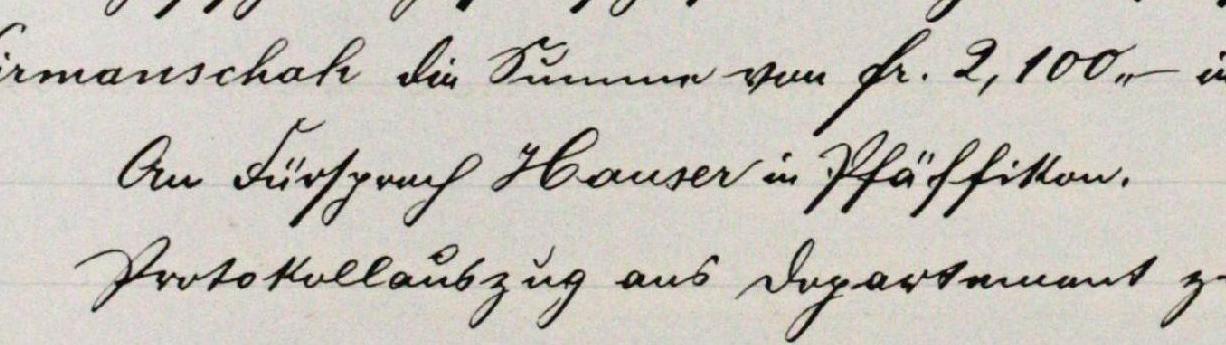 irmanschah die Summe von fr. 2,100.–
An Fürsprech Hauser in Pfäffikon.
Protokollauszug ans Departement